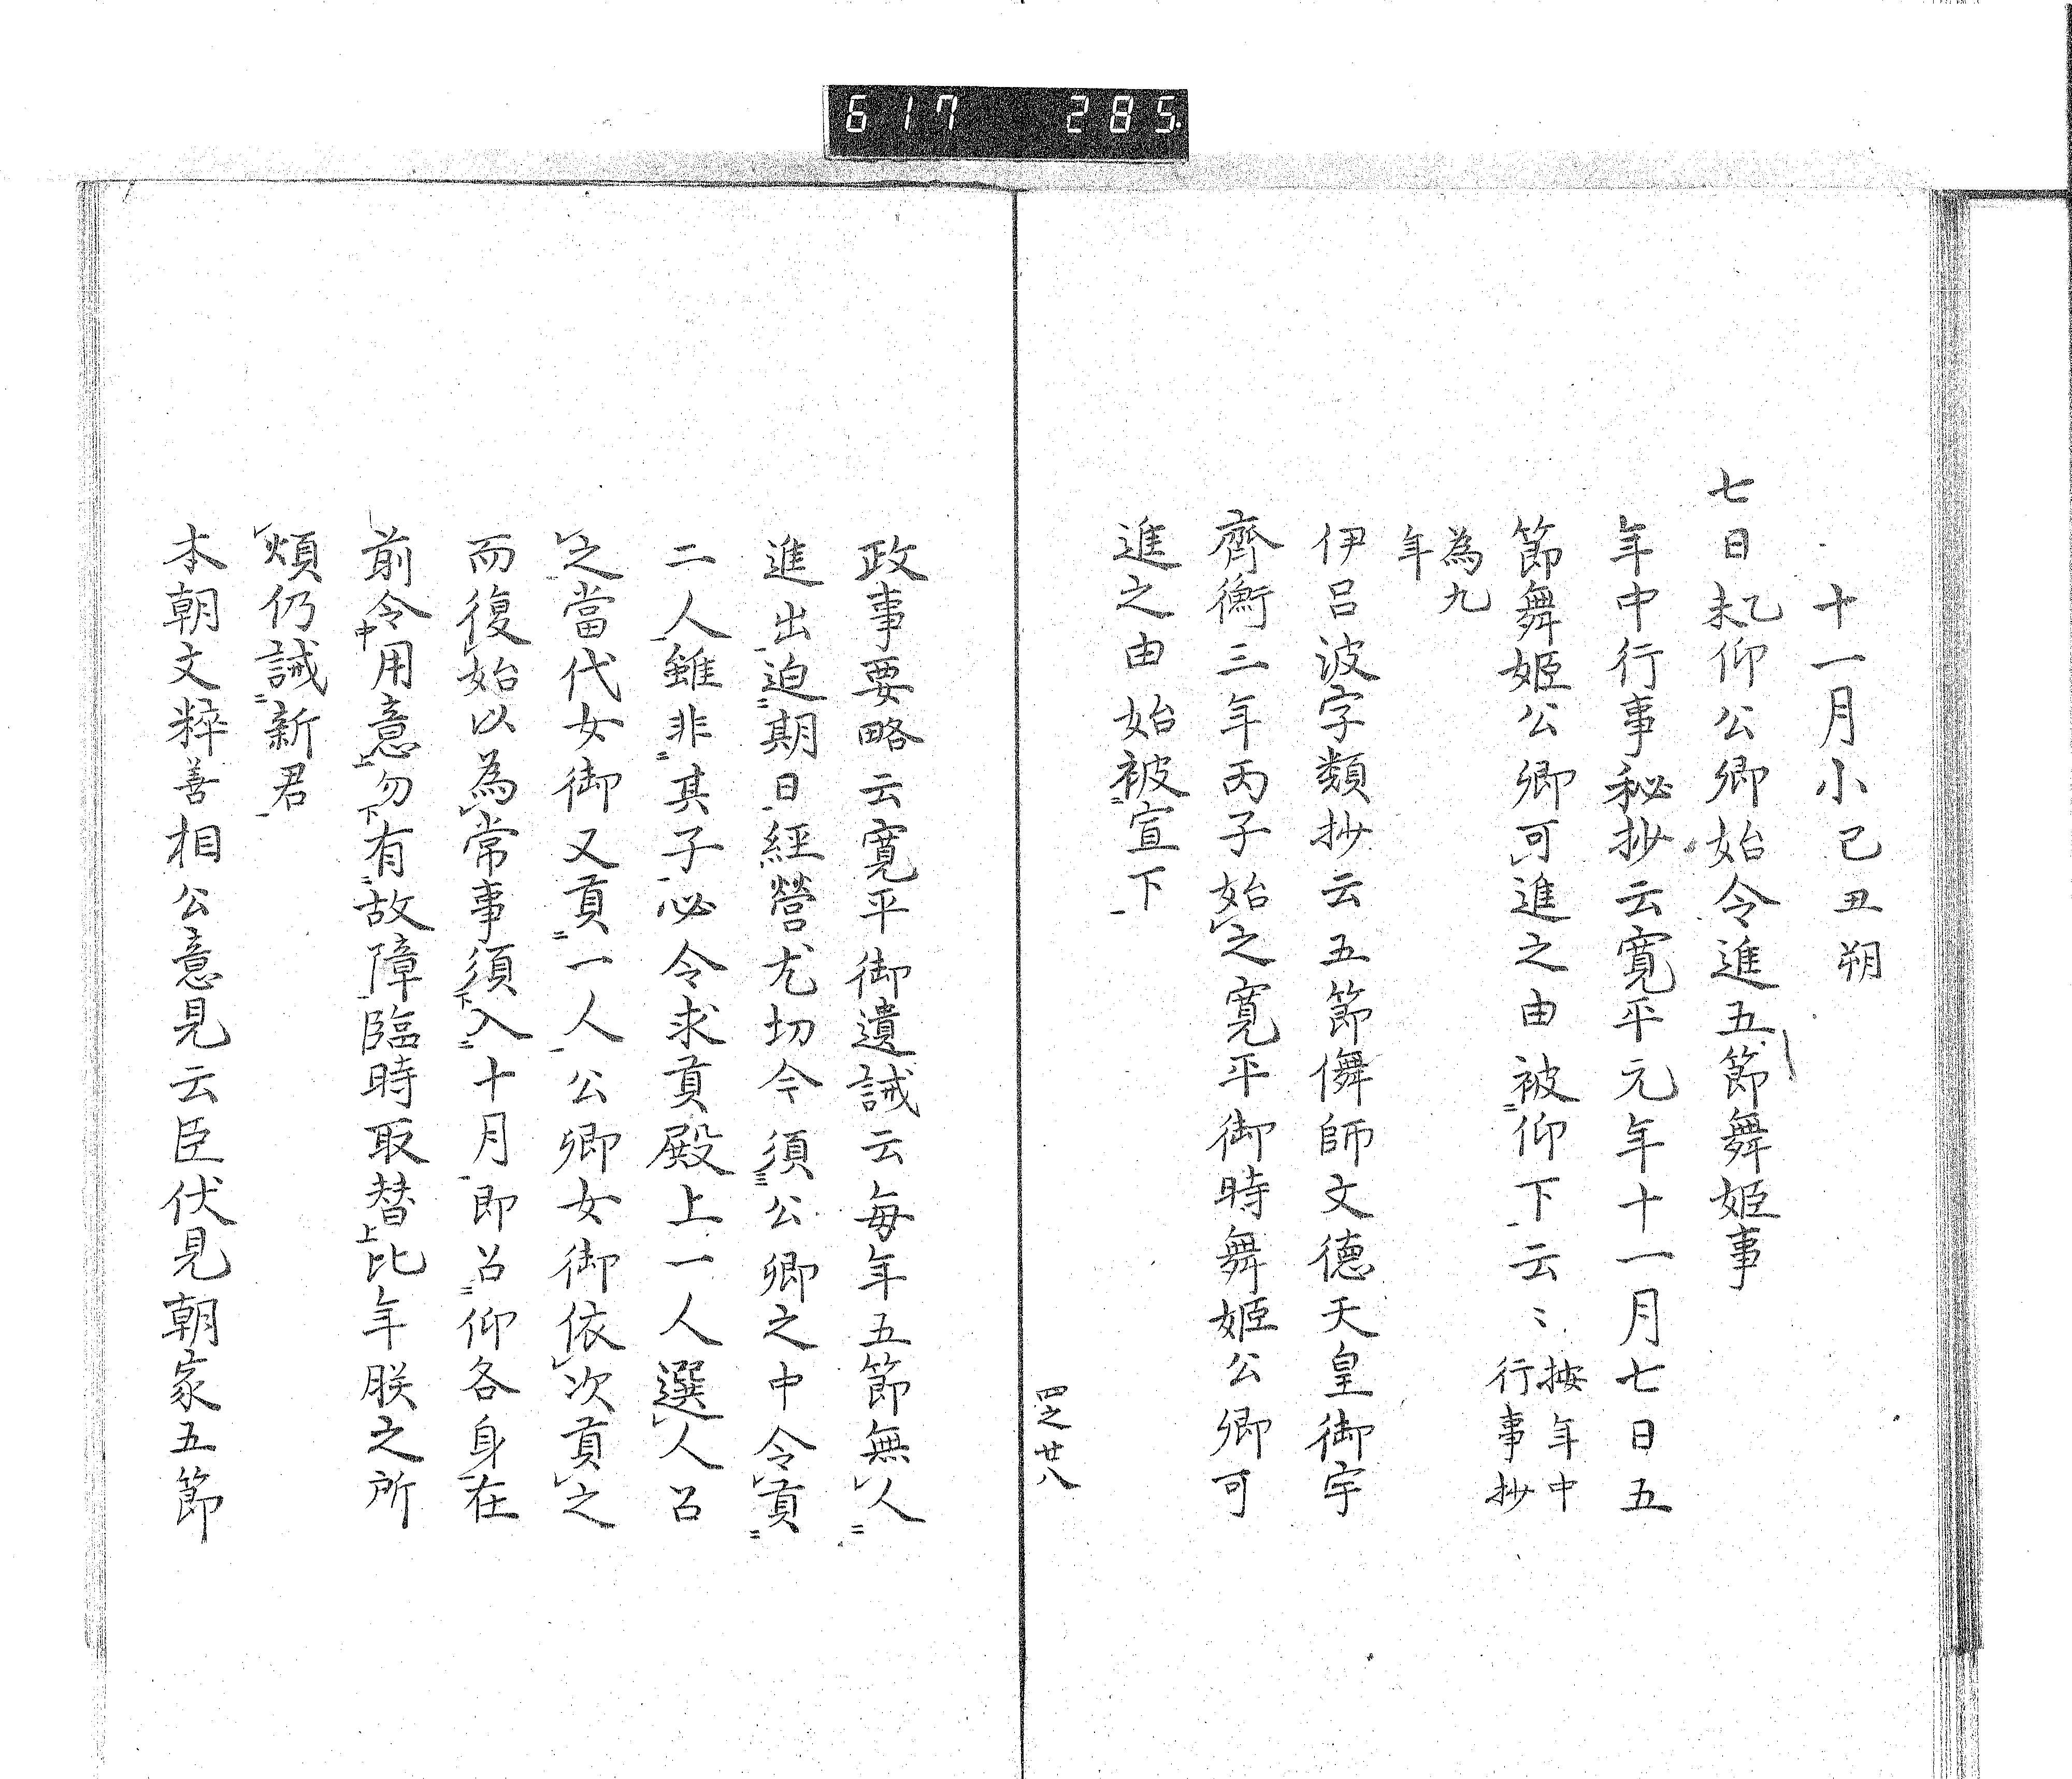 617 285
十一月小己丑朔
七日乙未仰公卿始令進五節舞姫事
年中行事秘抄云寛平元年十一月七日五
節舞姫公卿可進之由被仰下云〻按年中行事抄
為九年
伊呂波字類抄云五節儛師文徳天皇御宇
齊衡三年丙子始之寛平御時舞姫公卿可
進之由始被宣下
四之廿八
政事要略云寛平御遺誡云毎年五節無人
進出迫期日經營尤切今須公卿之中令貢
二人雖非其子必令求貢殿上一人選人召
之當代女御又貢一人公卿女御依次貢之
而復始以為常事須入十月即召仰各身在
前令用意勿有故障臨時取替比年朕之所
煩仍誡新君
本朝文粹善相公意見云臣伏見朝家五節